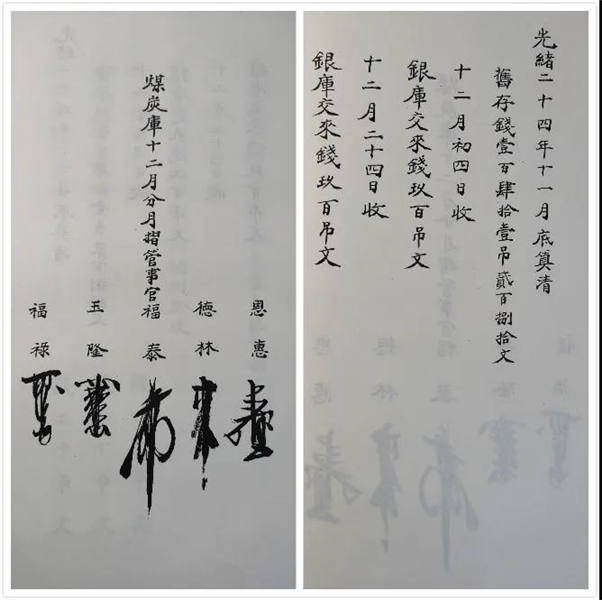 恩惠
德林
煤炭庫十二月分月摺管事官福泰
玉隆
福祿
光緒二十四年十一月底算清
舊存錢壹百肆拾壹吊貳百捌拾文
十二月初四日收
銀庫交來錢玖百吊文
十二月二十四日收
銀庫交來錢玖百吊文